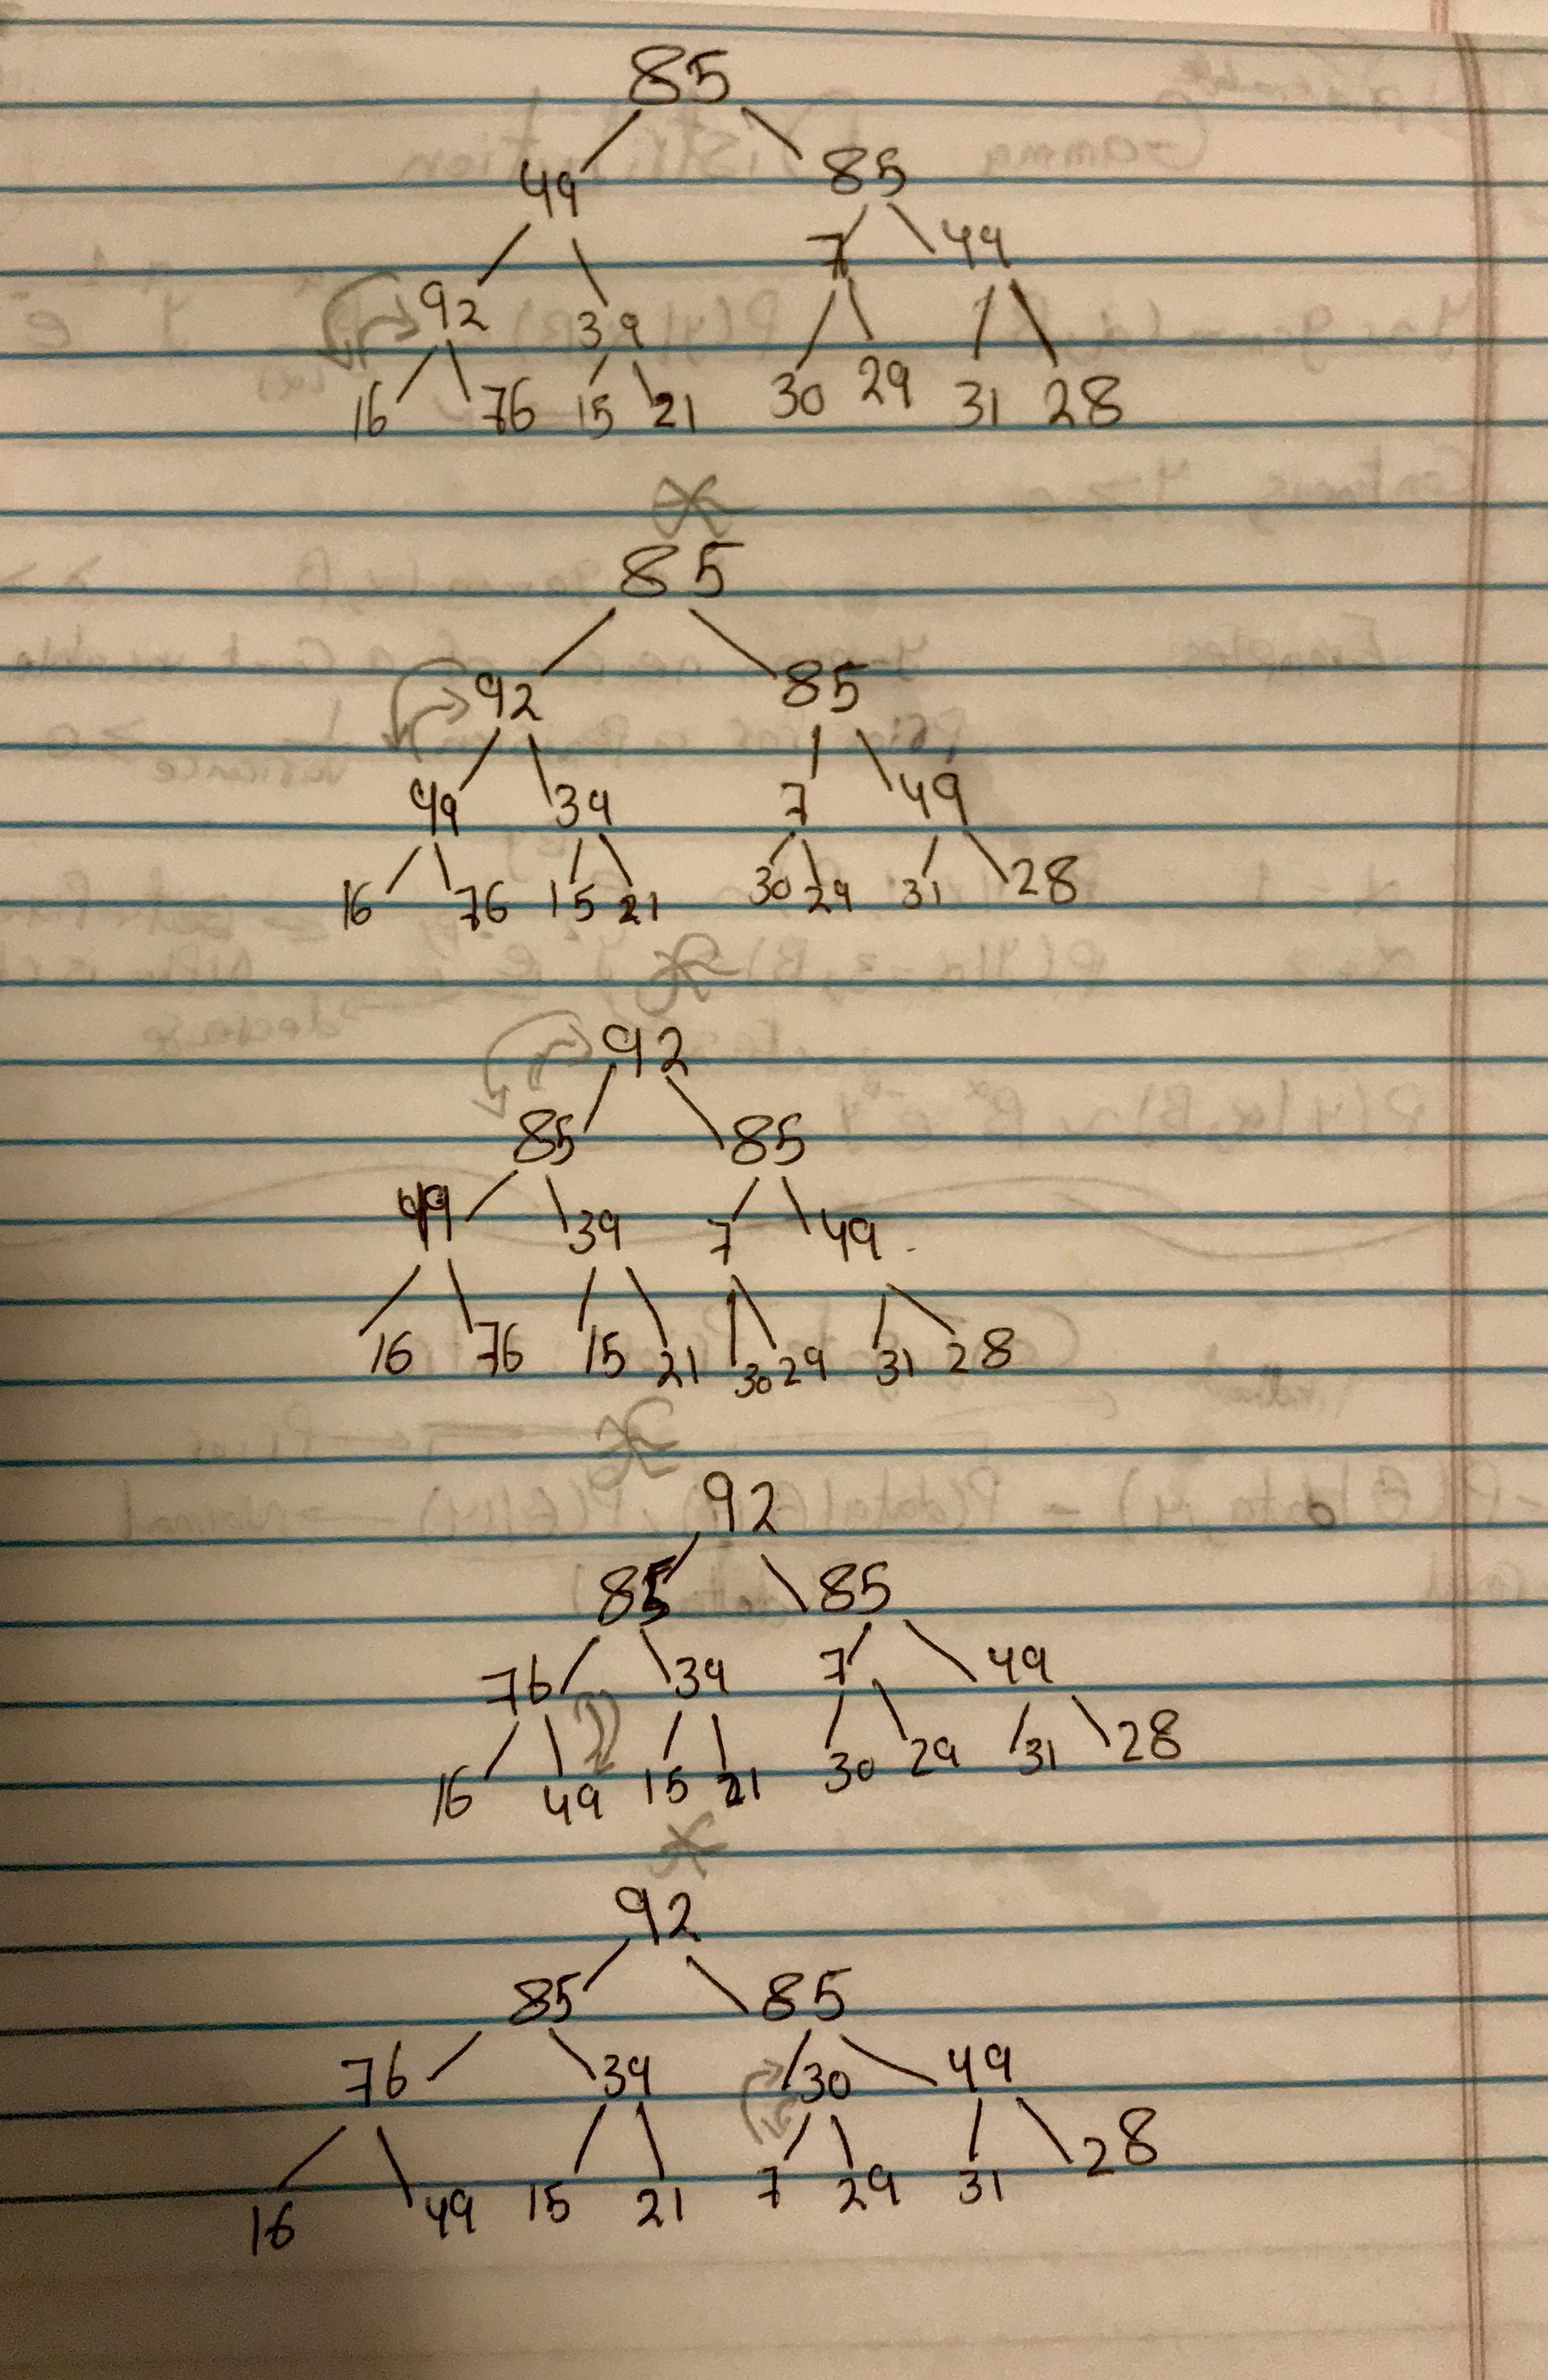 85
49 85
7 49
92 39
16 76 15 21 30 29 31 28
85
92 85
49 39 7 49
16 76 15 21 30 29 31 28
92
85 85
49 39 7 49
16 76 15 21 30 29 31 28
92
85 85
76 39 7 49
16 49 15 21 30 29 31 28
92
85 85
76 39 30 49
16 49 15 21 7 29 31 28